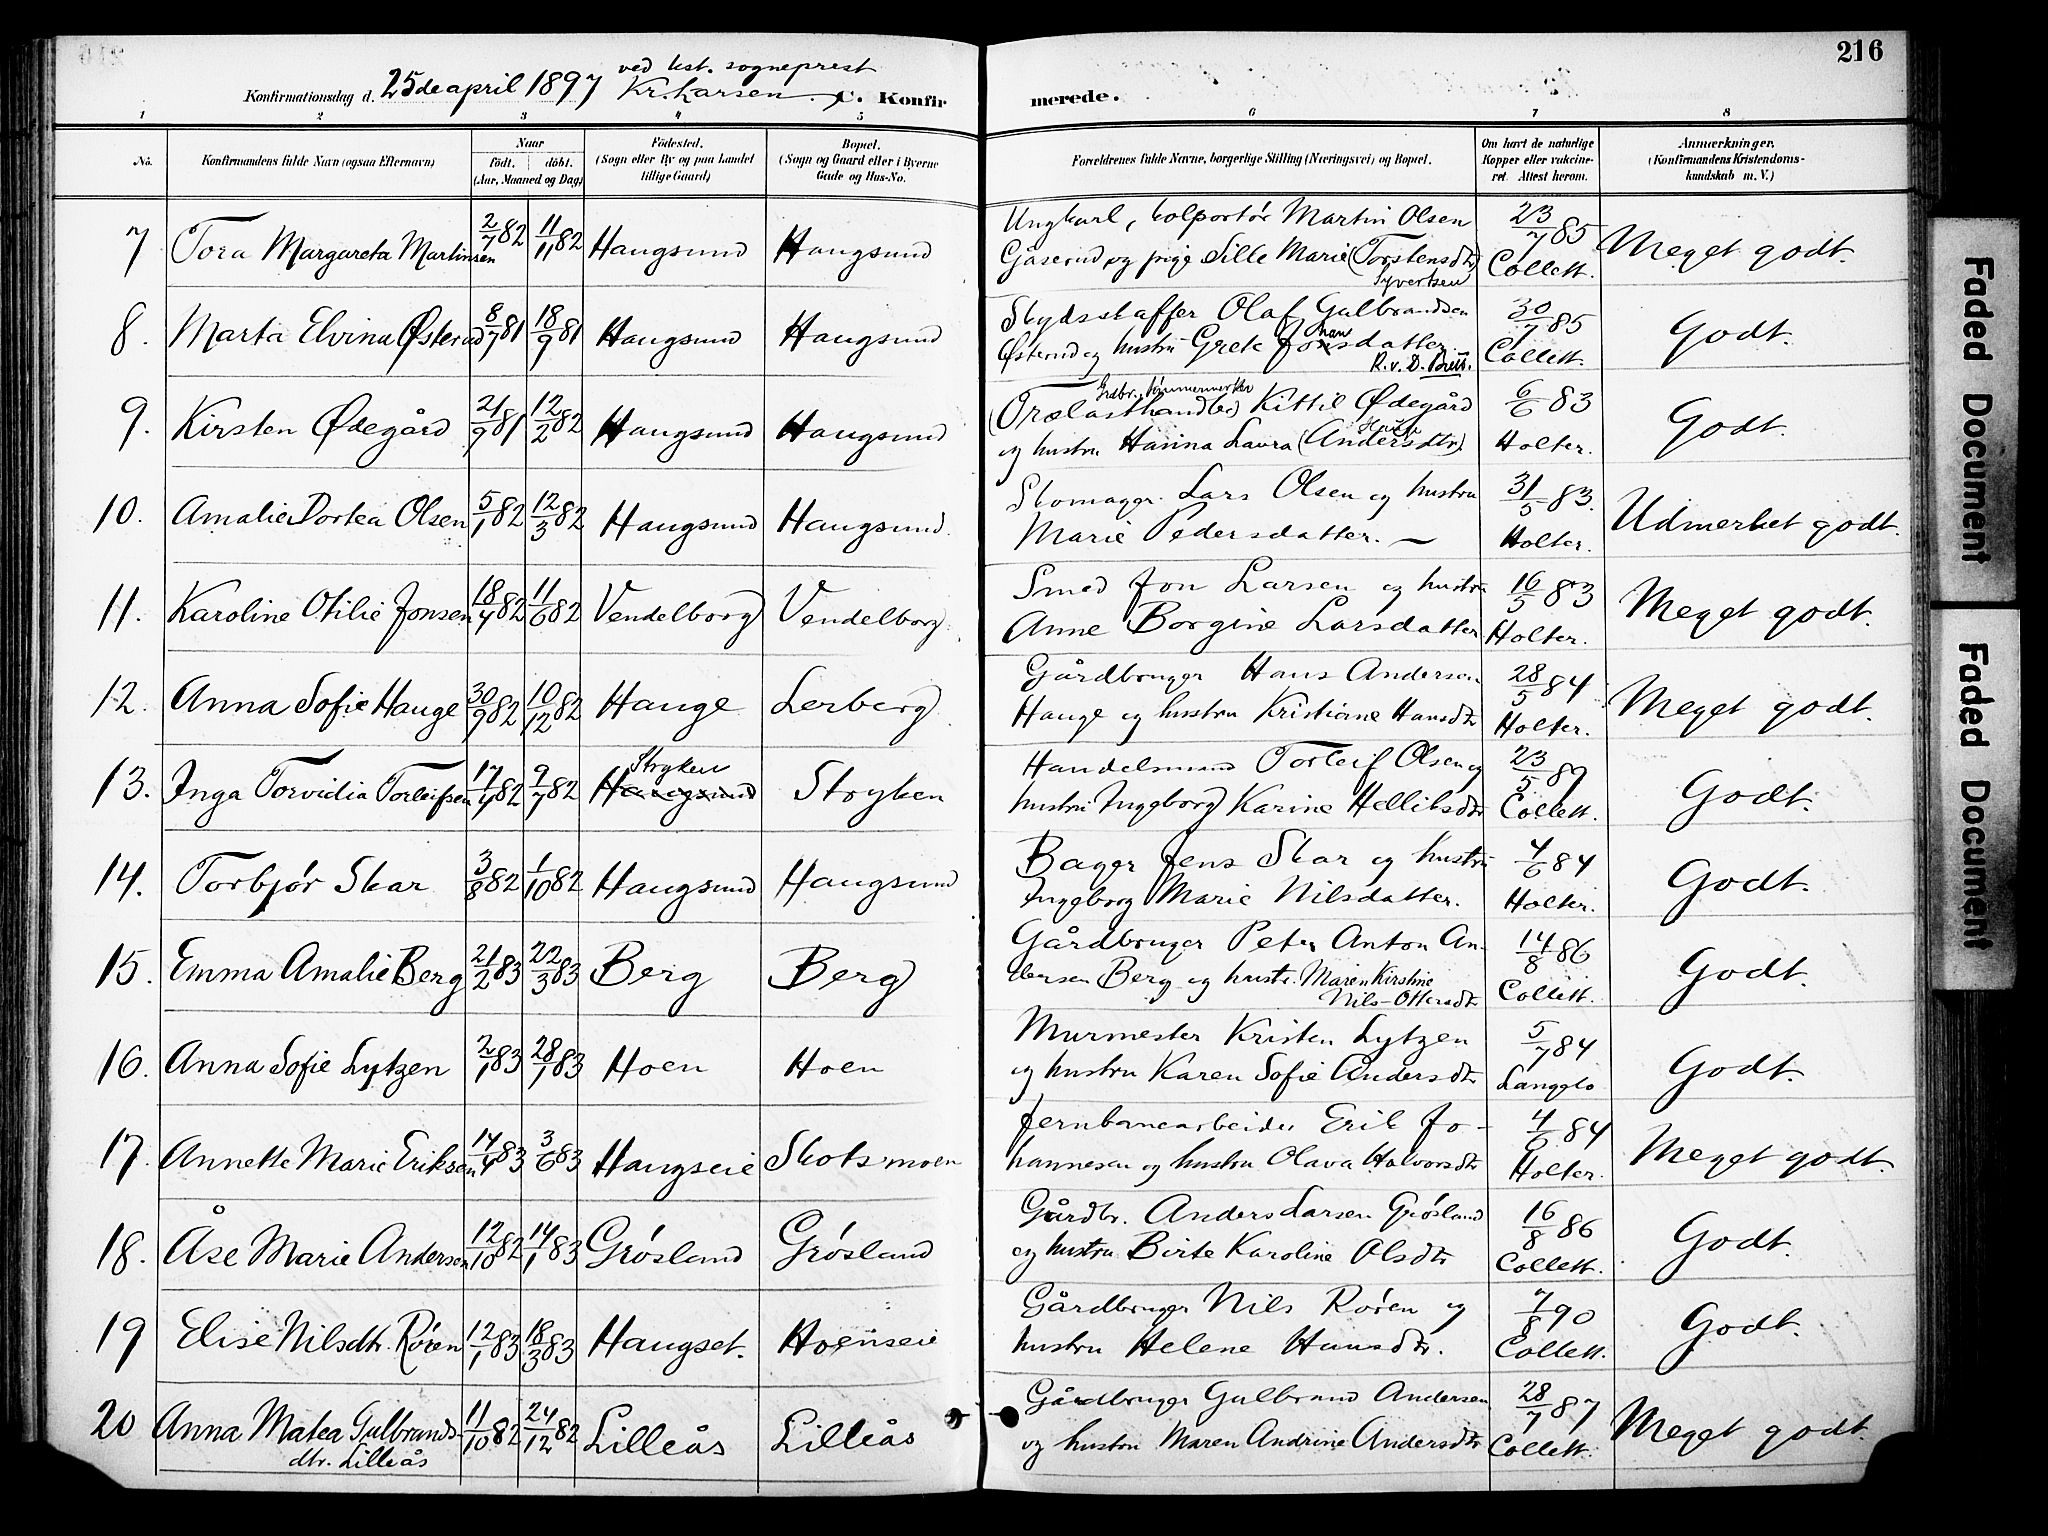 216
ved kst. sogneprest
Konfirmationsdag d. 25de april 1897 Kr. Larsen. C. Konfirmerede.
1 2 3 4 5 6 7 8
No. Konfirmandens fulde Navn (ogsaa Efternavn) Naar födt. döbt. (Aar, Maaned og Dag) Födested. (Sogn eller By og paa Landet tillige Gaard) Bopæl. (Sogn og Gaard eller i Byerne Gade og Hus-No. Forældrenes fulde Navne, borgerlige Stilling (Næringsvei) og Bopæl. Om havt de naturlige Kopper eller vakcineret. Attest herom. Anmærkninger. (Konfirmandens Kristendomskundskab m. V.)
7 Tora Margareta Martinsen 2/7 82 11/11 82 Haugsund Haugsund Ungkarl, kolportör Martin Olsen 23/7 85 Meget godt.
Gåserud og pige Sille Marie (Torstensdtr) Syvertsen Collett.
8. Marta Elvina Østerud 8/7 81 18/9 81 Haugsund Haugsund Skydsskaffer Olaf Gulbrandsen 30/7 85 Godt.
Østerud og hustru Grete Johansdatter. R. v. D. Brev. Collett.
9. Kirsten Ødegård 21/9 81 12/2 82 Haugsund Haugsund Grdbr. tömmermerker (Trælasthandler) Kittil Ødegård 6/6 83 Godt.
og hustru Hanna Laura (Andersdtr). Holter.
10. Amalie Dortea Olsen 5/1 82 12/3 82 Haugsund Haugsund. Skomager Lars Olsen og hustru 31/5 83. Udmerket godt.
Marie Pedersdatter. — Holter.
11. Karoline Otilie Jonsen 18/4 82 11/6 82 Vendelborg Vendelborg. Smed Jon Larsen og hustru 16/5 83 Meget godt.
Anne Borgine Larsdatter Holter.
12. Anna Sofie Hauge 30/9 82 10/12 82 Hauge Lerberg Gårdbruger Hans Andersen 28/5 84 Meget godt.
Hauge og hustru Kristiane Hansdtr Holter.
13. Inga Torvidia Torleifsen 17/4 82 9/7 82 Stryken Haugsund Stryken Handelsmand Torleif Olsen og 23/5 89 Godt.
hustru Ingeborg Karine Helliksdtr Collett.
14. Torbjør Skar 3/8 82 1/10 82 Haugsund Haugsund Bager Jens Skar og hustru 4/6 84 Godt.
Ingeborg Marie Nilsdatter. Holter.
15. Emma Amalie Berg 21/2 83 22/3 83 Berg Berg Gårdbruger Peter Anton An- 14/8 86 Godt.
dersen Berg og hustr. Maren Kirstine Nils-Ottersdtr Collett.
16. Anna Sofie Lytzen 2/1 83 28/1 83 Hoen Hoen Murmester Kristen Lytzen 5/7 84 Godt.
og hustru Karen Sofie Andersdtr Langglo
17. Annette Marie Eriksen 14/4 83 3/6 83 Haugseie Skotsmoen Jernbanearbeider Erik Jo- 4/6 84 Meget godt.
hannesen og hustru Olava Halvorsdtr Holter.
18. Åse Marie Andersen 12/10 82 14/1 83 Grósland Grósland Gårdbr. Anders Larsen Grósland 16/8 86 Godt.
og hustru Birte Karoline Olsdtr Collett.
19 Elise Nilsdtr. Róren 12/1 83 18/3 83 Haugset. Hoenseie Gårdbruger Nils Róren og 7/8 90 Godt.
hustru Helene Hansdtr. Collett.
20 Anna Matea Gulbrands- 11/10 82 24/12 82 Lilleås Lilleås Gårdbruger Gulbrand Andersen 28/7 87 Meget godt.
dtr. Lilleås og hustru Maren Andrine Andersdtr Collett.
Faded Document
Faded Document